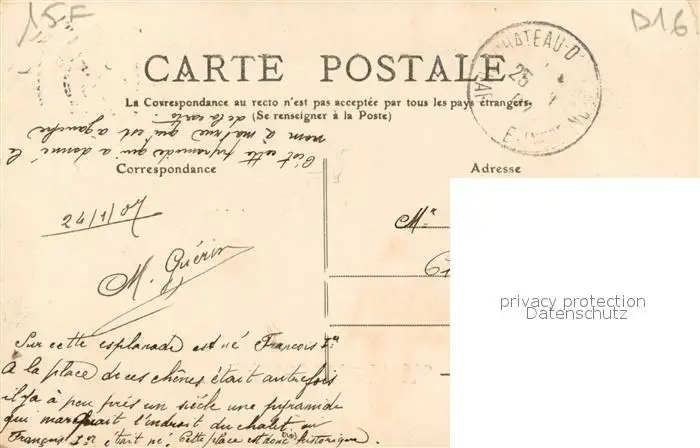 15F
D16
CHATEAU-D
25
CARTE POSTALE
La Correspondance au recto n'est pas acceptée par tous les pays étrangers.
(Se renseigner à la Poste)
C'est cette pyramide qui a donné le
nom à ma rue qui est à gauche
de la carte.
Correspondance
Adresse
24/1/07
M. Guérin
Mr
privacy protection
Datenschutz
Sur cette esplanade est né François Ier
A la place de ces chênes était autrefois
il y a à peu près un siècle une pyramide
qui marquait l'endroit du chalet où
François Ier était né. Cette place est donc historique.